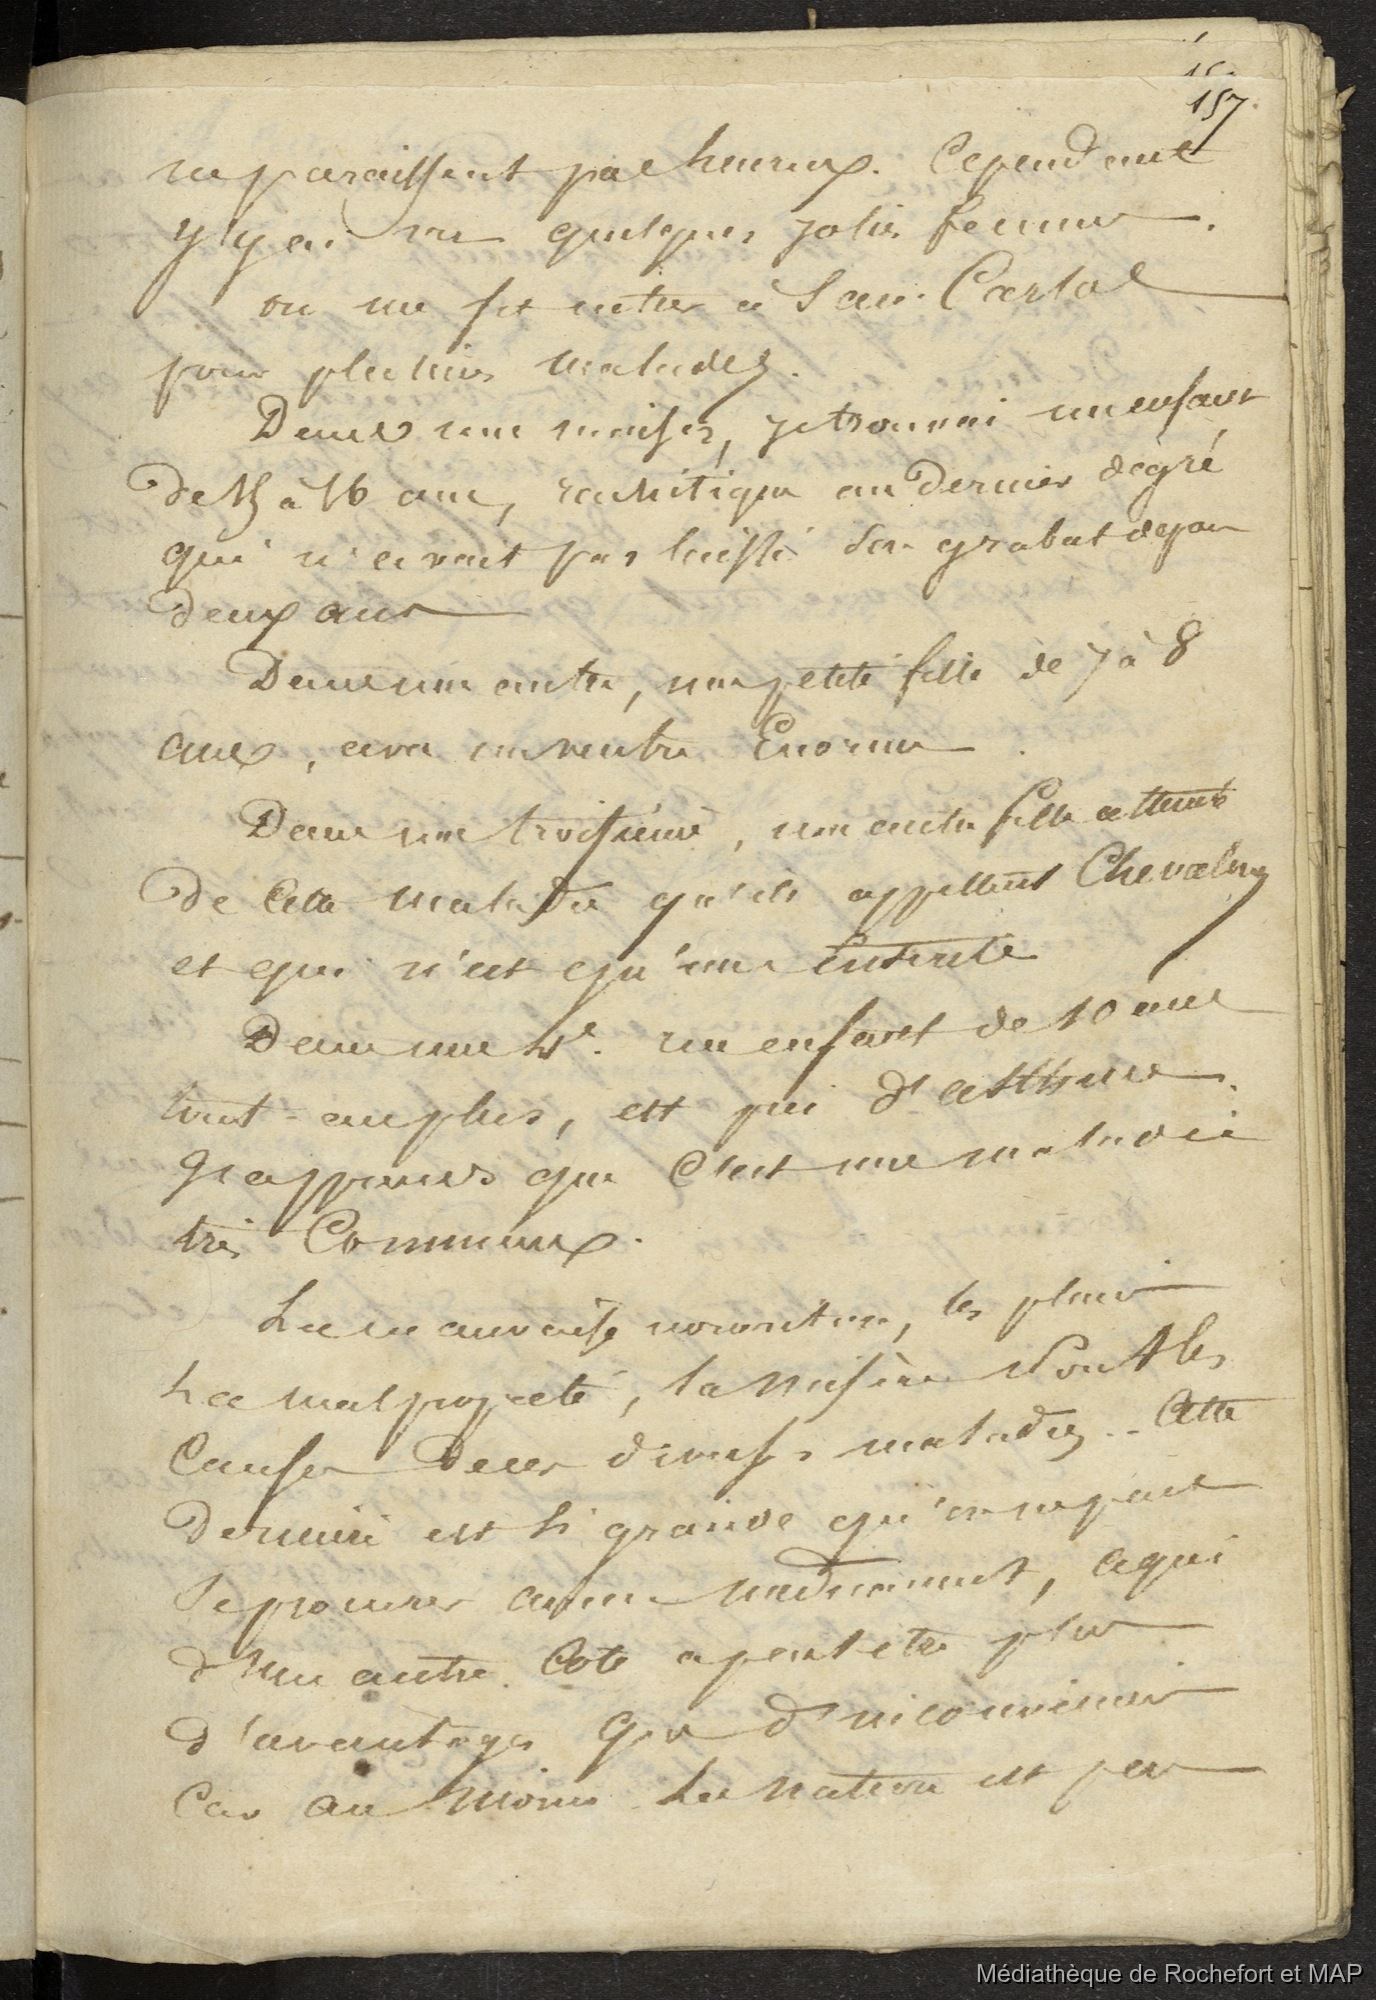 157
ne paraissent pas heureux. Cependant
j'y ai vu quelques jolies femmes.
on me fit entrer à San Carlos
pour plusieurs malades.
Dans une maison, je trouvai un enfant
de 15 à 16 ans, rachitique au dernier dégré
qui n'avait pas laissé son grabat depuis
deux ans
Dans une autre, une petite fille de 7 à 8
ans, avec un ventre Enorme.
Dans une troisième, une autre fille atteinte
de cette maladie qu'ils appellent
et qui n'est qu'une Entérite
Dans une 4e. un enfant de 10 ans
tout-au plus, est pris d'asthme.
J'apprends que C'est une maladie
très Commune.
La mauvaise nourriture, les pluies
La malpropreté, la misère sont les
Causes de ces diverses maladies.. Cette
dernière est si grande qu'on ne peut
se procurer aucun médicament, ce qui
d'un autre Coté a peut etre plus
d'avantages que d'inconvéniens
Car au moins la nature est peu
Médiathèque de Rochefort et MAP